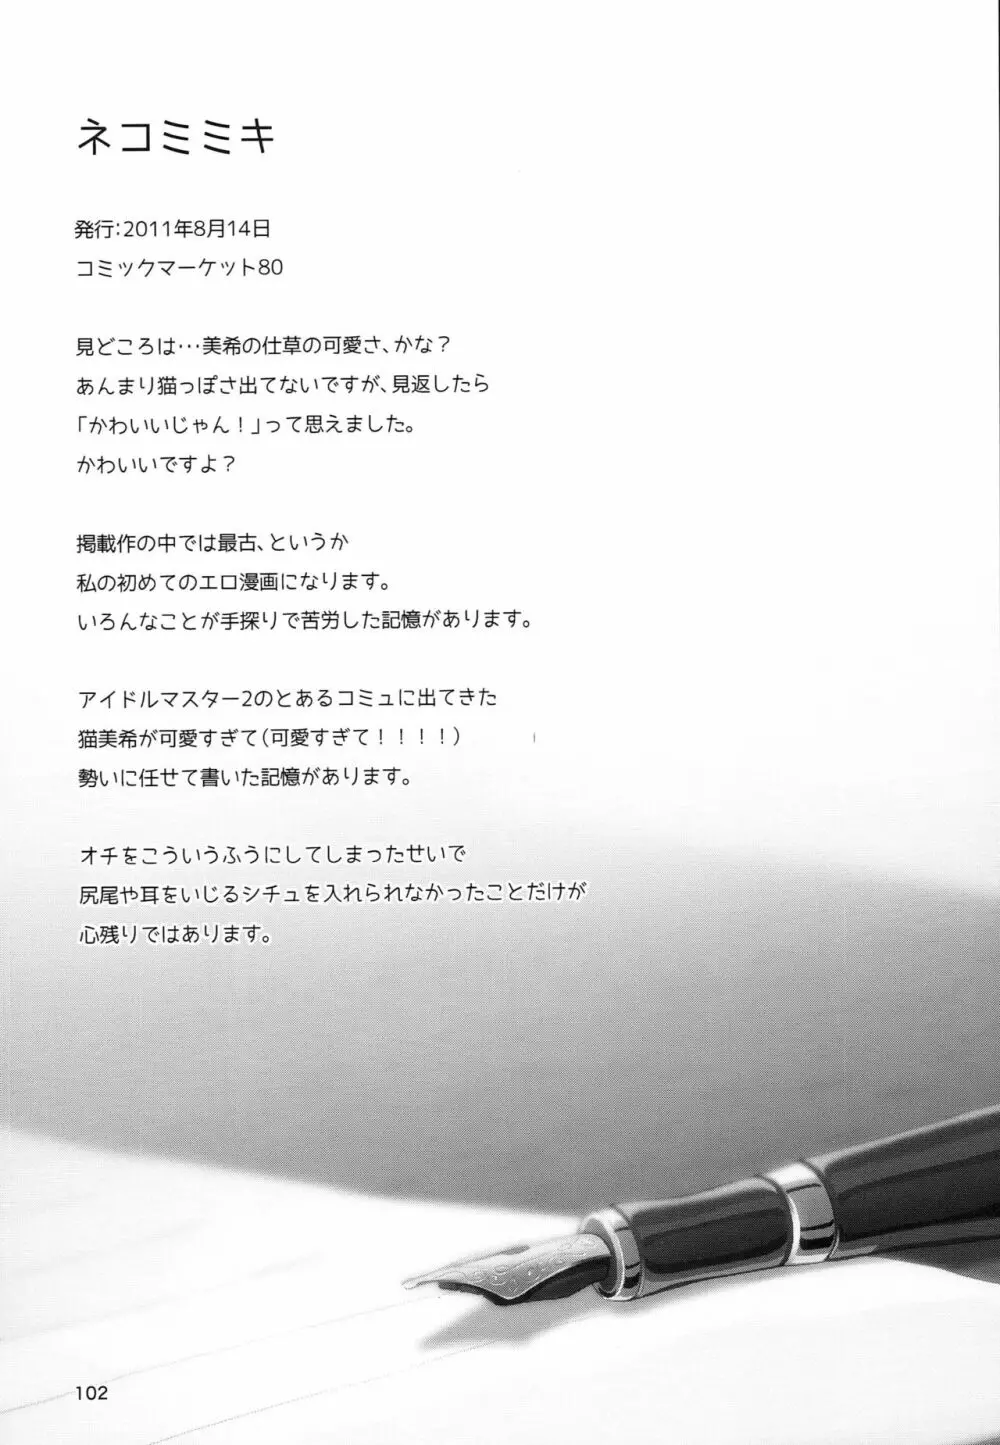 ネコミミキ
発行：2011年8月14日
コミックマーケット80
見どころは…美希の仕草の可愛さ、かな？
あんまり猫っぽさ出てないですが、見返したら
「かわいいじゃん！」って思えました。
かわいいですよ？
掲載作の中では最古、というか
私の初めてのエロ漫画になります。
いろんなことが手探りで苦労した記憶があります。
アイドルマスター2のとあるコミュに出てきた
猫美希が可愛すぎて（可愛すぎて！！！！）
勢いに任せて書いた記憶があります。
オチをこういうふうにしてしまったせいで
尻尾や耳をいじるシチュを入れられなかったことだけが
心残りではあります。
102